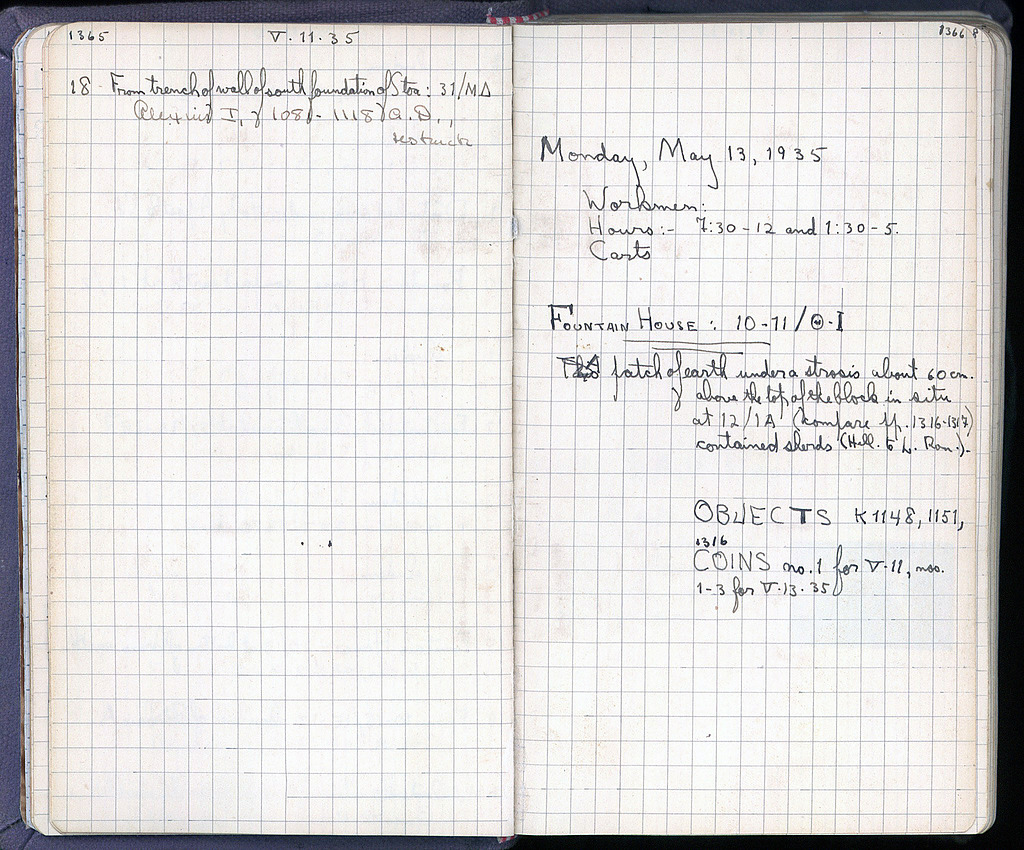 1365
V.11.35
18 - From trench of wall of south foundation of Stoa: 31/ΜΔ
Alexius I, 1081-1118 A.D.,
restruck
1366
Monday, May 13, 1935
Workmen:
Hours:- 7:30-12 and 1:30-5.
Carts
FOUNTAIN HOUSE: 10-11/Θ-I
patch of earth under a strosis about 60 cm.
above the top of the block in situ
at 12/IA (compare pp. 1316-1317)
contained sherds (Hell. to L. Rom.).
OBJECTS K1148, 1151,
1316
COINS no. 1 for V.11, nos.
1-3 for V.13.35